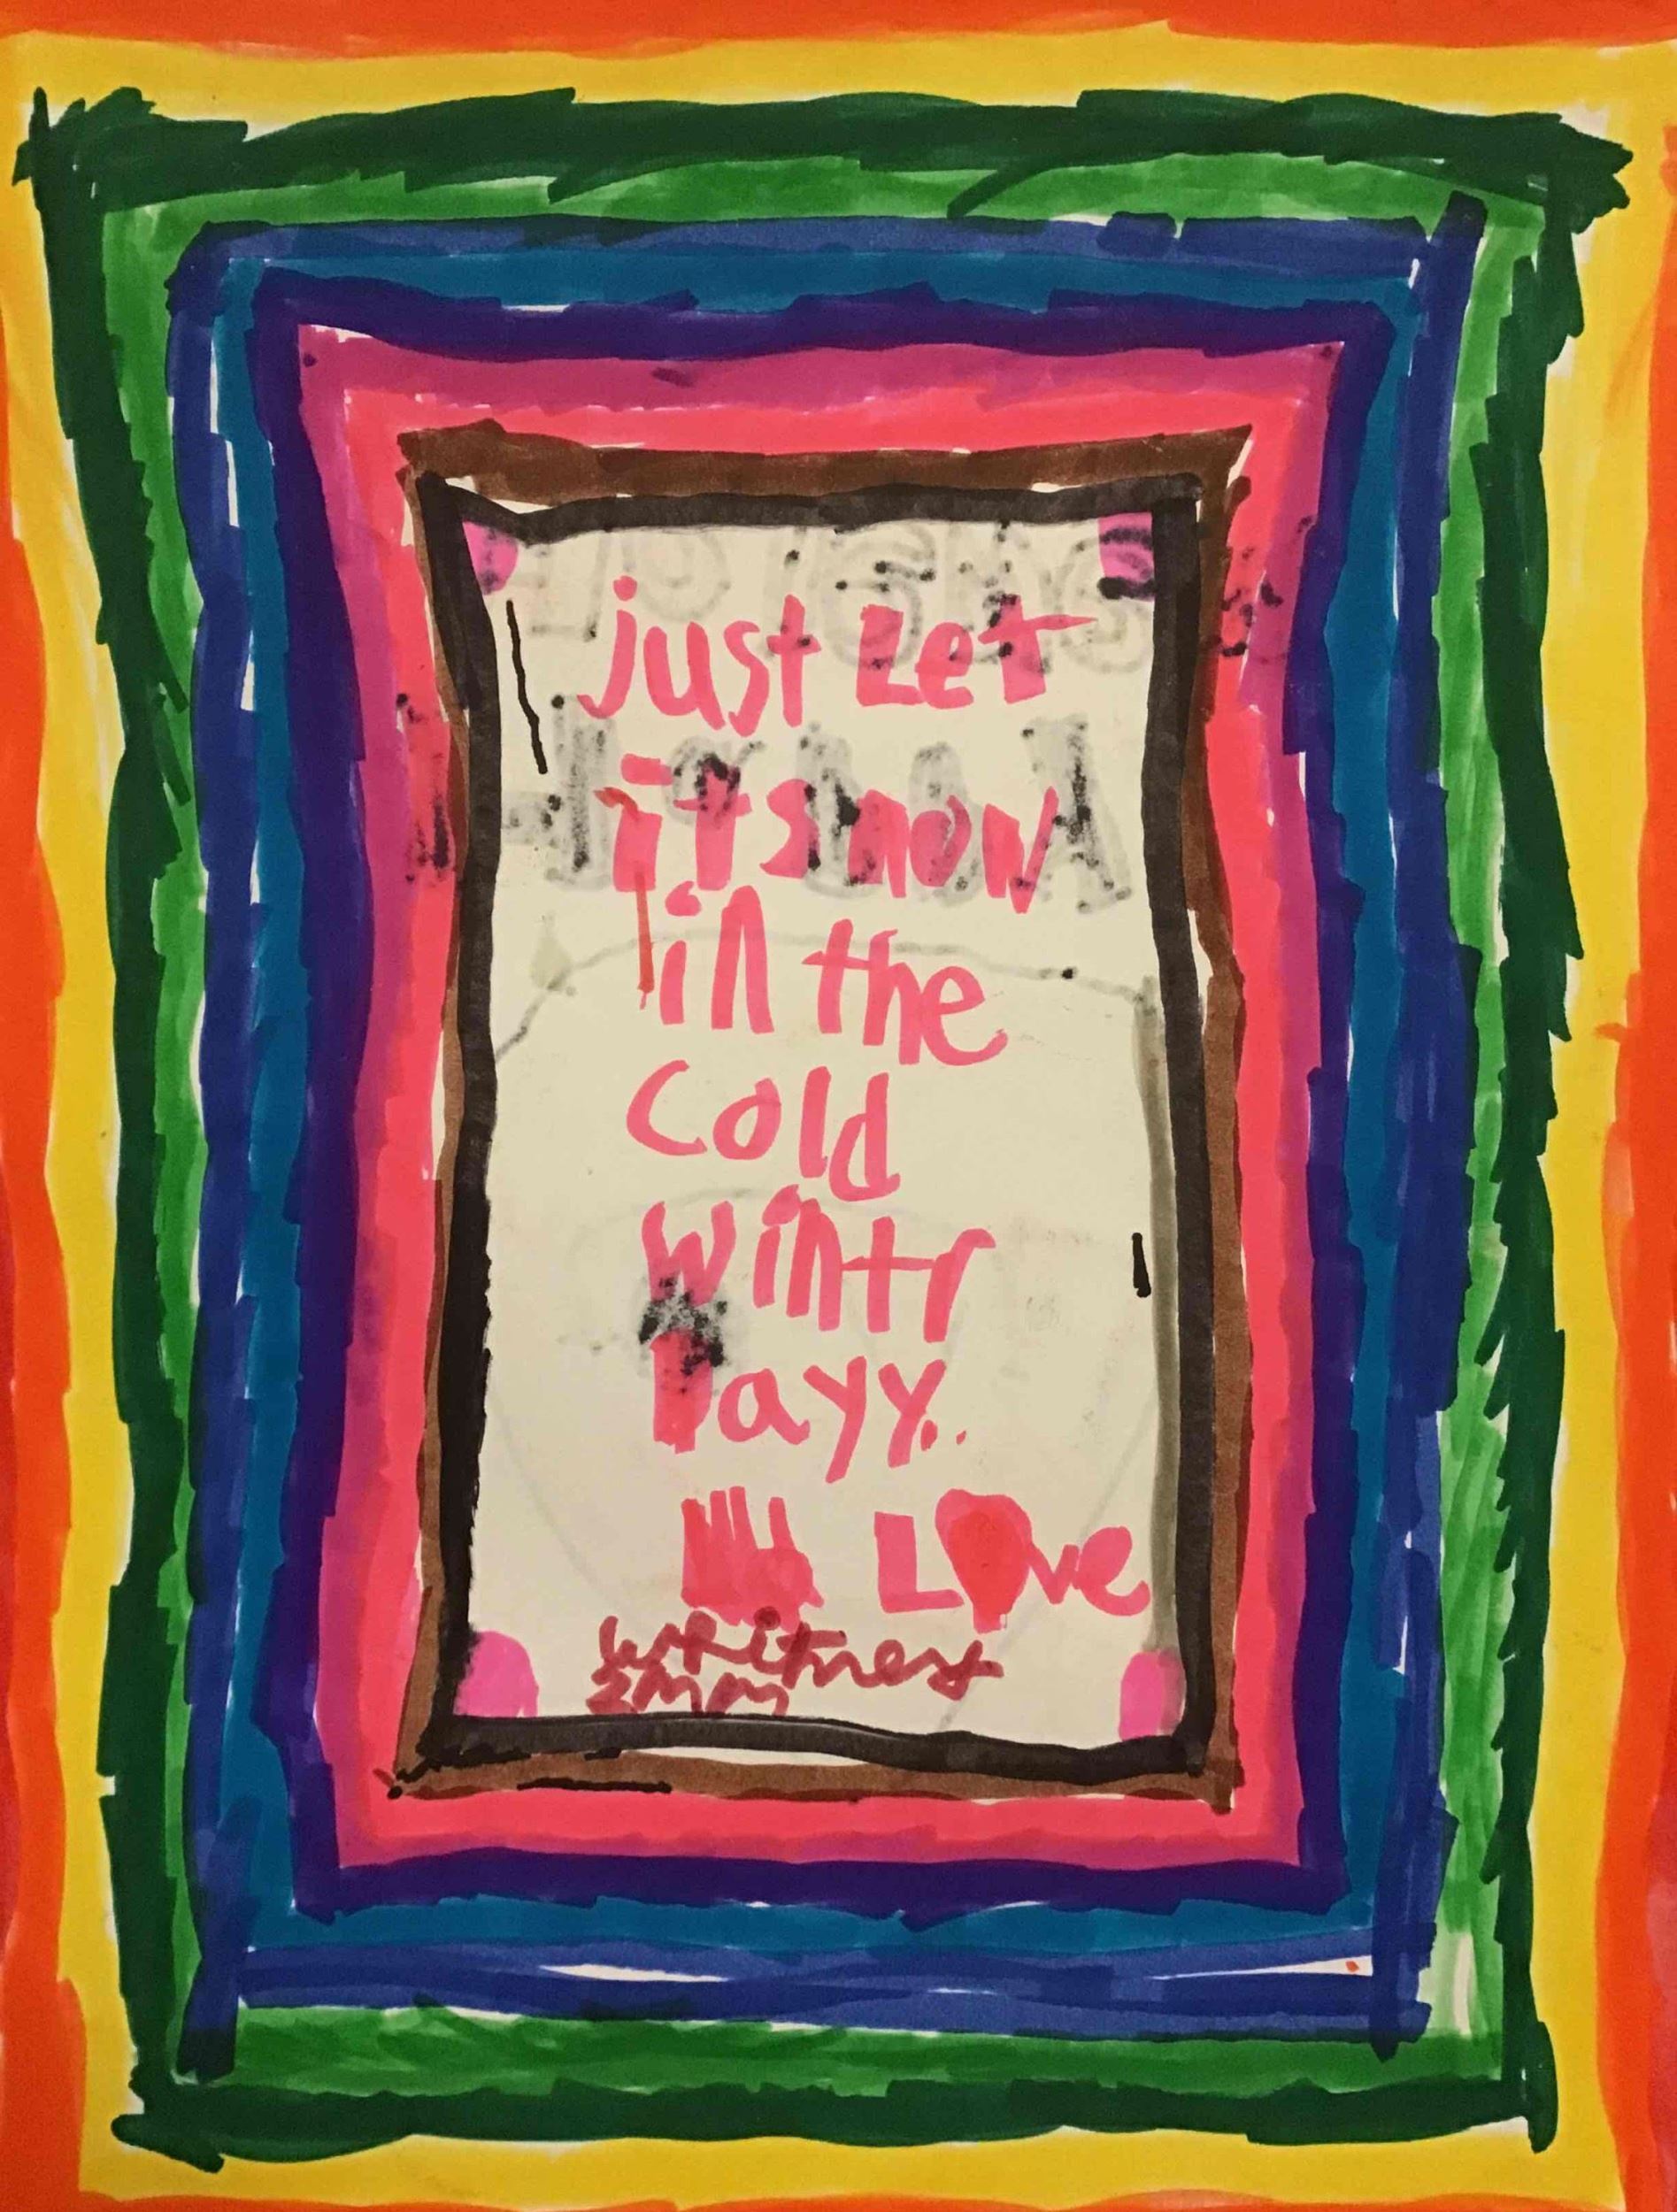 just Let
it snow
in the
cold
wintr
Dayy..
LOve
whitney